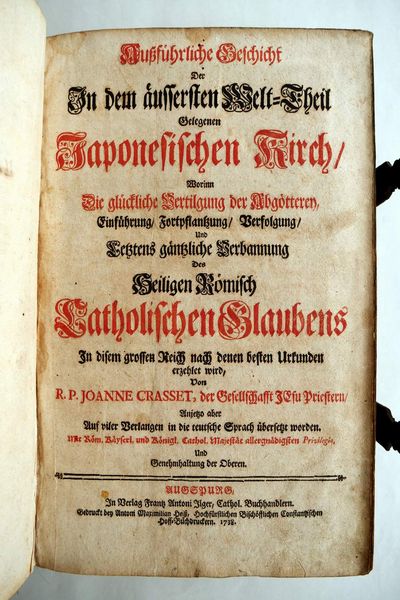 Außführliche Geschicht
Der
In dem äussersten Welt=Theil
Gelegenen
Japonesischen Kirch/
Worinn
Die glückliche Vertilgung der Abgötterey/
Einführung/ Fortpflantzung/ Verfolgung/
Und
Letztens gäntzliche Verbannung
Des
Heiligen Römisch
Catholischen Glaubens
In disem grossen Reich nach denen besten Urkunden
erzehlet wird/
Von
R. P. JOANNE CRASSET, der Gesellschafft JEsu Priestern/
Anjetzo aber
Auf viler Verlangen in die teutsche Sprach übersetzt worden.
Mit Röm. Käyserl. und Königl. Cathol. Majestät allergnädigsten Privilegio,
Und
Genehmhaltung der Oberen.
AUGSPURG,
In Verlag Frantz Antoni Ilger, Cathol. Buchhandlern.
Gedruckt bey Antoni Maximilian Heiß, Hochfürstlichen Bischöfflichen Constantzischen
Hoff=Buchdruckern. 1738.